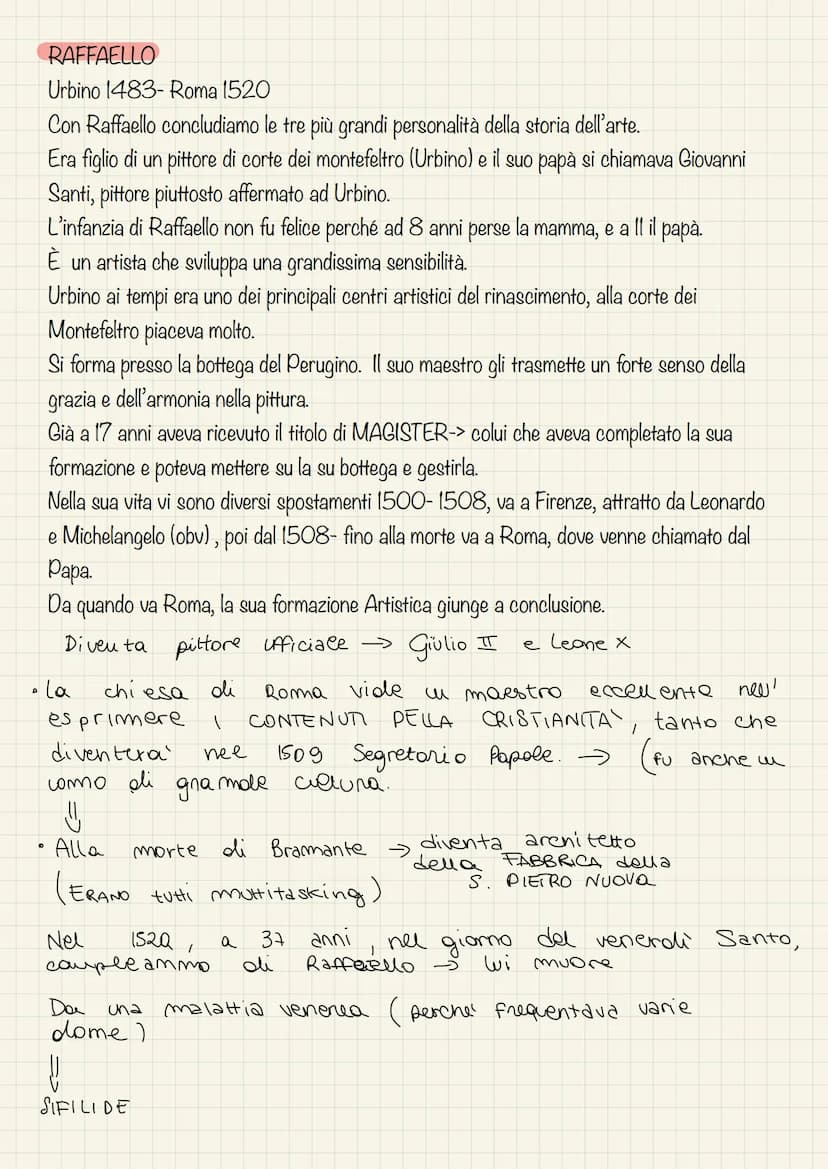 RAFFAELLO
Urbino 1483- Roma 1520
Con Raffaello concludiamo le tre più grandi personalità della storia dell'arte.
Era figlio di un pittore di corte dei montefeltro (Urbino) e il suo papà si chiamava Giovanni
Santi, pittore piuttosto affermato ad Urbino.
L'infanzia di Raffaello non fu felice perché ad 8 anni perse la mamma, e a 11 il papà.
È un artista che sviluppa una grandissima sensibilità.
Urbino ai tempi era uno dei principali centri artistici del rinascimento, alla corte dei
Montefeltro piaceva molto.
Si forma presso la bottega del Perugino. Il suo maestro gli trasmette un forte senso della
grazia e dell'armonia nella pittura.
Già a 17 anni aveva ricevuto il titolo di MAGISTER-> colui che aveva completato la sua
formazione e poteva mettere su la su bottega e gestirla.
Nella sua vita vi sono diversi spostamenti 1500- 1508, va a Firenze, attratto da Leonardo
e Michelangelo (obv) , poi dal 1508- fino alla morte va a Roma, dove venne chiamato dal
Papa.
Da quando va Roma, la sua formazione Artistica giunge a conclusione.
Diventa pittore ufficiale → Giulio II e Leone X
• La chiesa di Roma vide un maestro eccellente nell'
esprimere i CONTENUTI DELLA CRISTIANITA', tanto che
diventera' nel 1509 Segretario Papale. → (fu anche un
uomo di grande cultura.
⇓
• Alla morte di Bramante → diventa architetto
della FABBRICA della
S. PIETRO NUOVA
(ERANO tutti multitasking)
Nel 1520, a 37 anni, nel giorno del venerdì Santo,
compleanno di Raffaello → lui muore
Da una malattia venerea (perche' frequentava varie
donne)
⇓
SIFILIDE